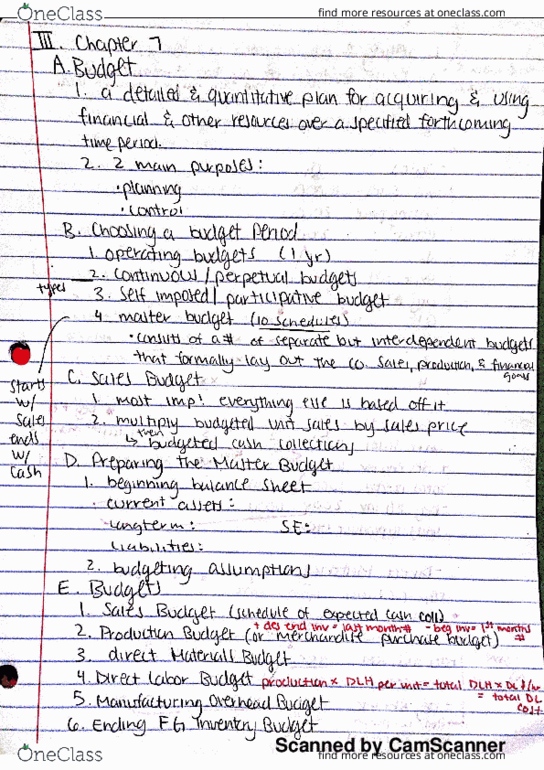 OneClass
find more resources at oneclass.com
III. Chapter 7
A. Budget
1. a detailed & quantitative plan for acquiring & using
financial & other resources over a specified forthcoming
time period.
2. 2 main purposes:
• planning
• control
B. Choosing a budget Period
1. operating budgets (1 yr)
2. continuous/perpetual budgets
types
3. Self imposed/participative budget
4 master budget (10 schedules)
• consists of a # of separate but interdependent budgets
that formally lay out the co. sales, production, & financial
goals
starts
w/
sales
ends
w/
cash
C. Sales Budget
1. most imp! everything else is based off it
2. multiply budgeted unit sales by sales price
↳ then budgeted cash collections
D. Preparing the Master Budget
1. beginning balance sheet
• current assets:
longterm: SE:
liabilities:
2. budgeting assumptions
E. Budgets
1. Sales Budget (schedule of expected cash coll)
+ des end inv = last month # - beg inv = 1st months #
2. Production Budget (or merchandise purchase budget)
3. direct Materials Budget
4. Direct Labor Budget production x DLH per unit = total DLH x DL $/hr
= total DL
cost
5. Manufacturing Overhead Budget
6. Ending FG Inventory Budget
Scanned by CamScanner
OneClass
find more resources at oneclass.com